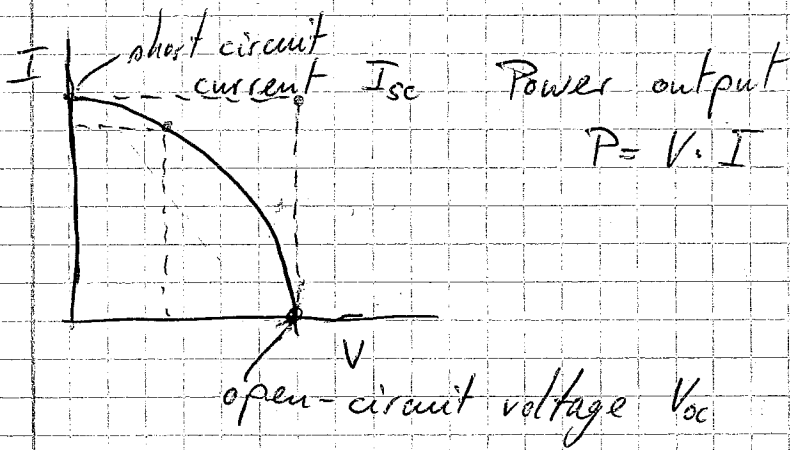 I
short circuit
current I_sc
Power output
P = V · I
V
open-circuit voltage V_oc